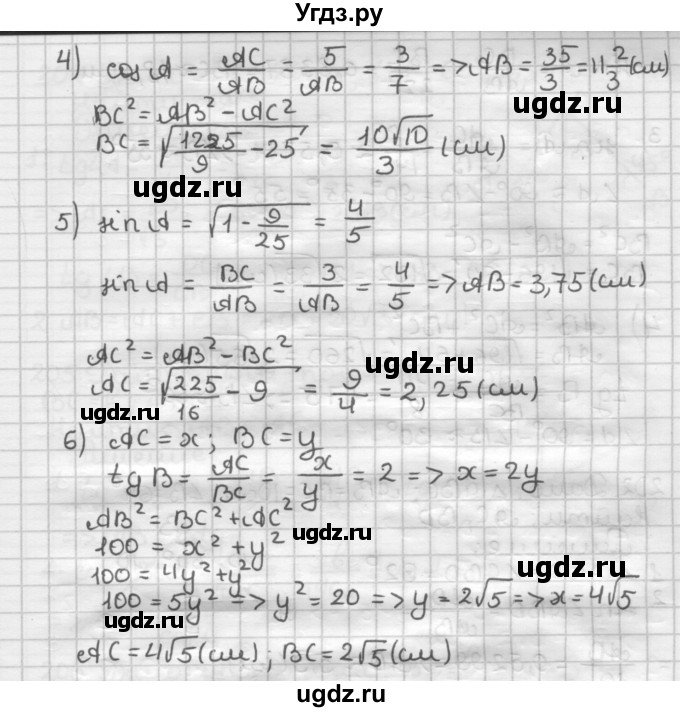 Угдз.ру
4) cos A = AC/AB = 5/AB = 3/7 => AB = 35/3 = 11 2/3 (см)
BC² = AB² - AC²
BC = √(1225/9 - 25) = 10√10/3 (см)
ugdz.ru
ugdz.ru
5) sin A = √(1 - 9/25) = 4/5
sin A = BC/AB = 3/AB = 4/5 => AB = 3,75 (см)
AC² = AB² - BC²
ugdz.ru
AC = √(225/16 - 9) = 9/4 = 2,25 (см)
ugdz.ru
6) AC = x; BC = y
tg B = AC/BC = x/y = 2 => x = 2y
AB² = BC² + AC²
ugdz.ru
100 = x² + y²
100 = 4y² + y²
ugdz.ru
100 = 5y² => y² = 20 => y = 2√5 => x = 4√5
ugdz.ru
AC = 4√5 (см); BC = 2√5 (см)
ugdz.ru